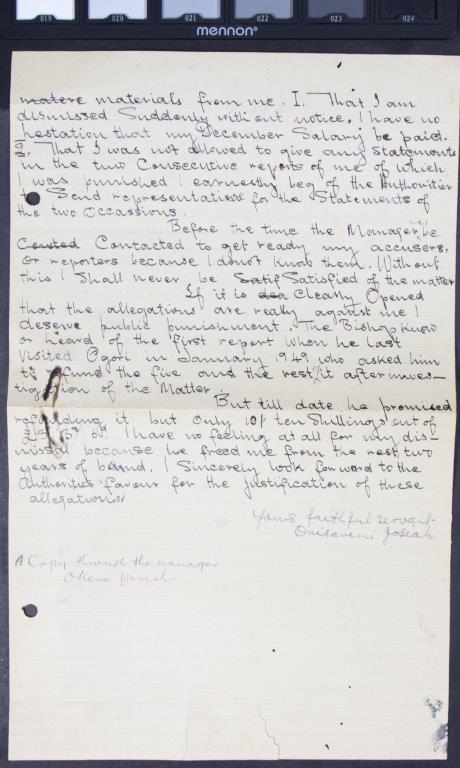 019 020 021 022 023 024
mennon
matere materials from me. I. That I am
dismissed Suddenly without notice. I have no
hestation that my December Salary be paid.
2. That I was not allowed to give any Statements
in the two Consecutive reports of me of which
I was punished I earnestly beg of the Authorities
to Send representative for the Statements of
the two Occassions.
Before the time the Manager be
Contacted to get ready my accusers,
or reporters because I donot know them. Without
this I Shall never be Satisfied of the matter
If it is Clearly Opened
that the allegations are really against me I
deserve public punishment. The Bishop know
or heard of the first report when he last
Visited Ogori in January 1949 who asked him
to refund the five and the rest it after inves-
tigation of the Matter.
But till date he promised
refunding it but only 10/ ten Shillings out of
I have no feeling at all for my dis-
missal because he freed me from the rest two
years of bond. I Sincerely look forward to the
Authorities favour for the justification of these
allegations
Yours faithful servant
Josiah
A Copy through the manager
Okene parish